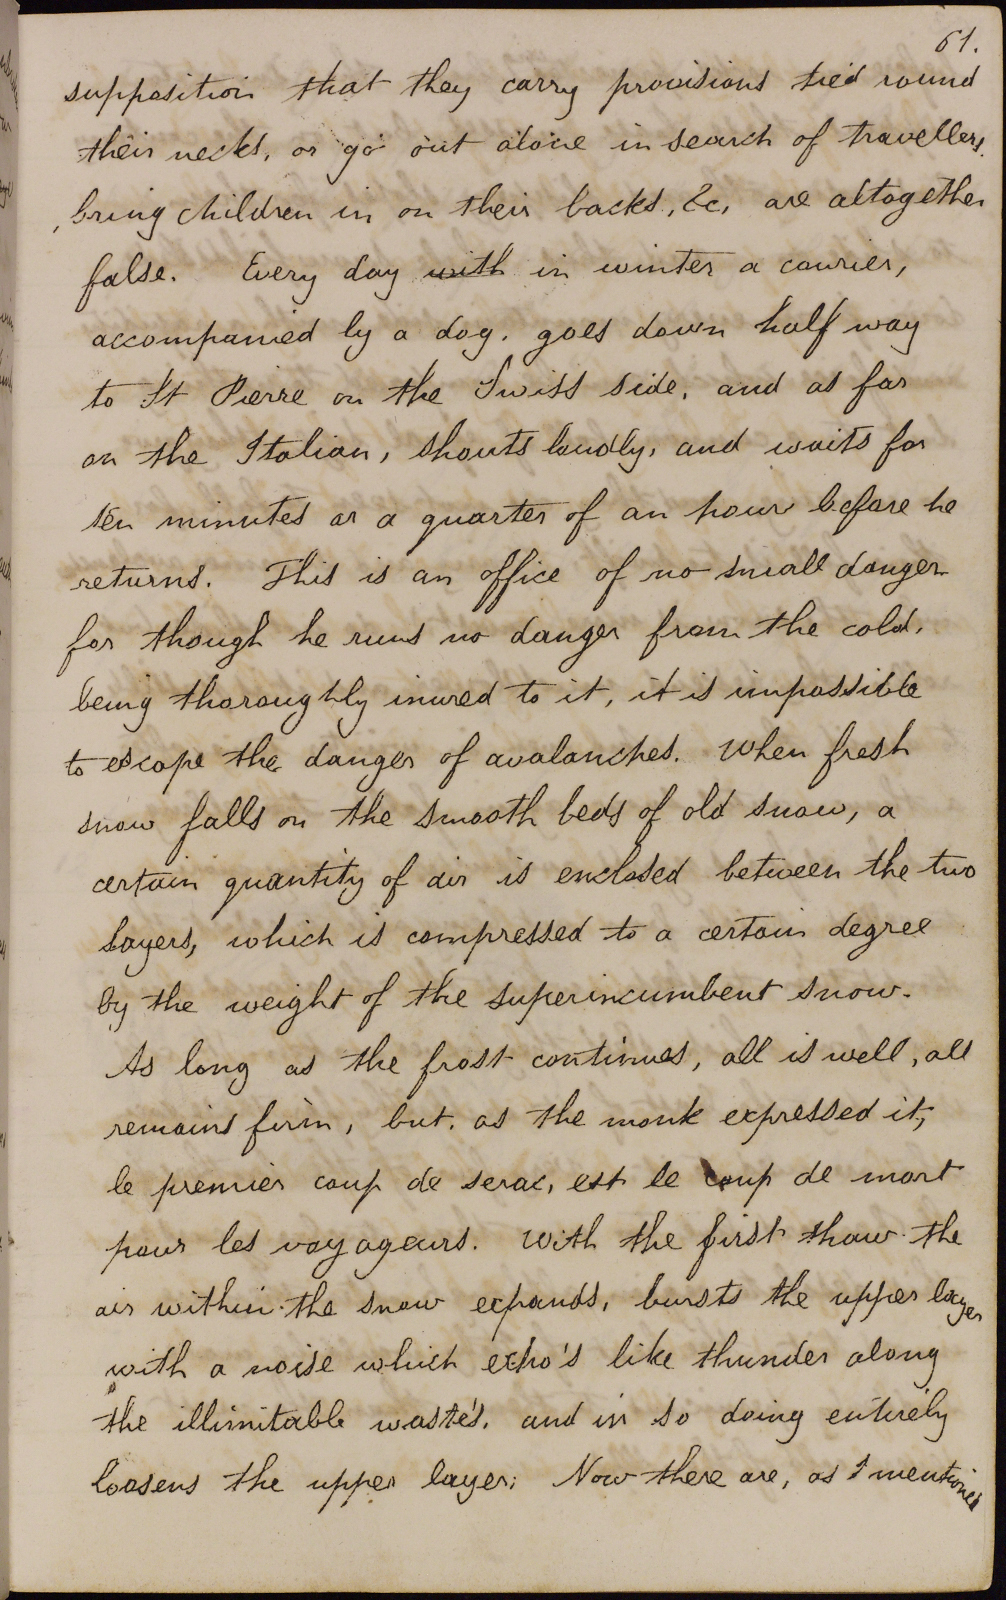 61.
supposition that they carry provisions tied round
their necks, or go out alone in search of travellers,
bring children in on their backs, &c, are altogether
false. Every day with in winter a courier,
accompanied by a dog, goes down half way
to St Pierre on the Swiss side, and as far
on the Italian, shouts loudly, and waits for
ten minutes or a quarter of an hour before he
returns. This is an office of no small danger
for though he runs no danger from the cold,
being thoroughly inured to it, it is impossible
to escape the danger of avalanches. When fresh
snow falls on the smooth beds of old snow, a
certain quantity of air is enclosed between the two
layers, which is compressed to a certain degree
by the weight of the superincumbent snow.
As long as the frost continues, all is well, all
remains firm, but, as the monk expressed it,
le premier coup de serac, est le coup de mort
pour les voyageurs. With the first thaw the
air within the snow expands, bursts the upper layer
with a noise which echo's like thunder along
the illimitable wastes, and in so doing entirely
loosens the upper layer; Now there are, as I mentioned